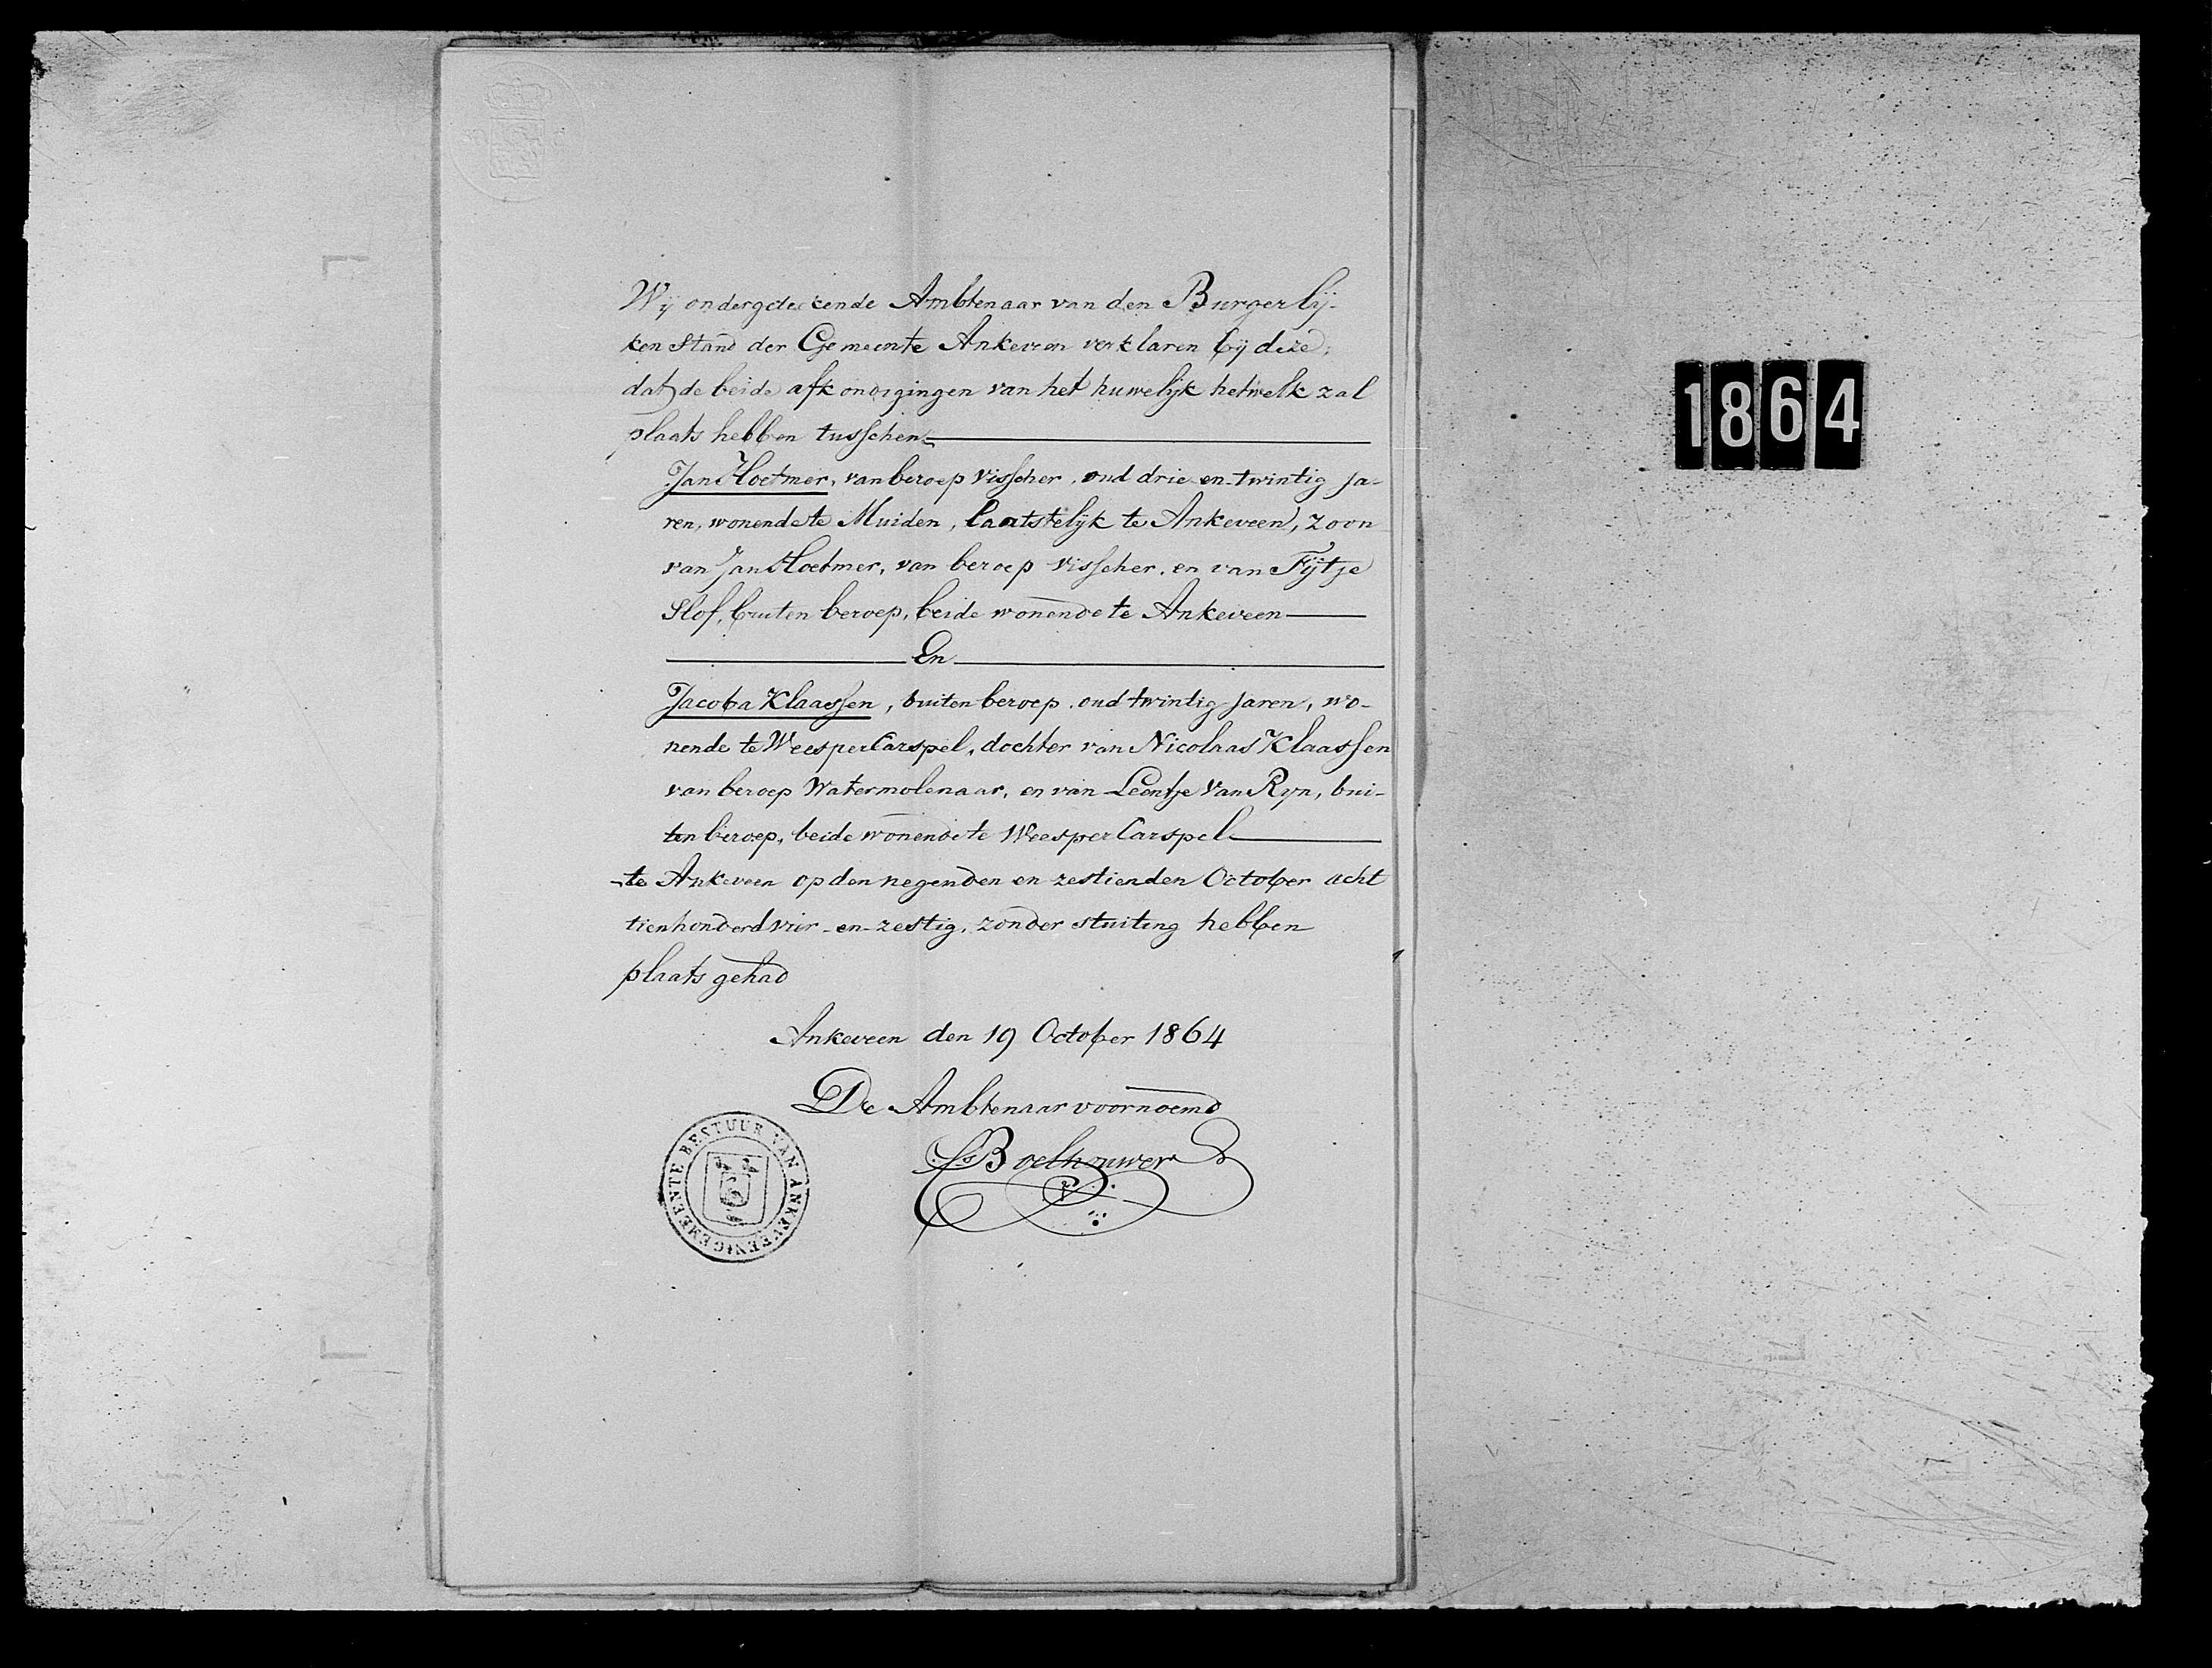 Wij ondergeteekende Ambtenaar van den Burgerlij-
ken Stand der Gemeente Ankeveen verklaren bij deze,
dat de beide afkondigingen van het huwelijk hetwelk zal
plaats hebben tusschen
Jan Hoetmer, van beroep Visscher, oud drie-en-twintig Ja-
ren, wonende te Muiden, laatstelijk te Ankeveen, zoon
van Jan Hoetmer, van beroep Visscher, en van Fijtje
Slof, buiten beroep, beide wonende te Ankeveen
En
Jacoba Klaassen, buiten beroep, oud twintig Jaren, wo-
nende te WeesperCarspel, dochter van Nicolaas Klaassen
van beroep Watermolenaar, en van Leentje Van Ryn, bui-
ten beroep, beide wonende te WeesperCarspel
te Ankeveen op den negenden en zestienden October acht
tienhonderd vier-en-zestig, zonder stuiting hebben
plaats gehad
Ankeveen den 19 October 1864
De Ambtenaar voornoemd
Boelhouwer
GEMEENTE BESTUUR VAN ANKEVEEN
1864